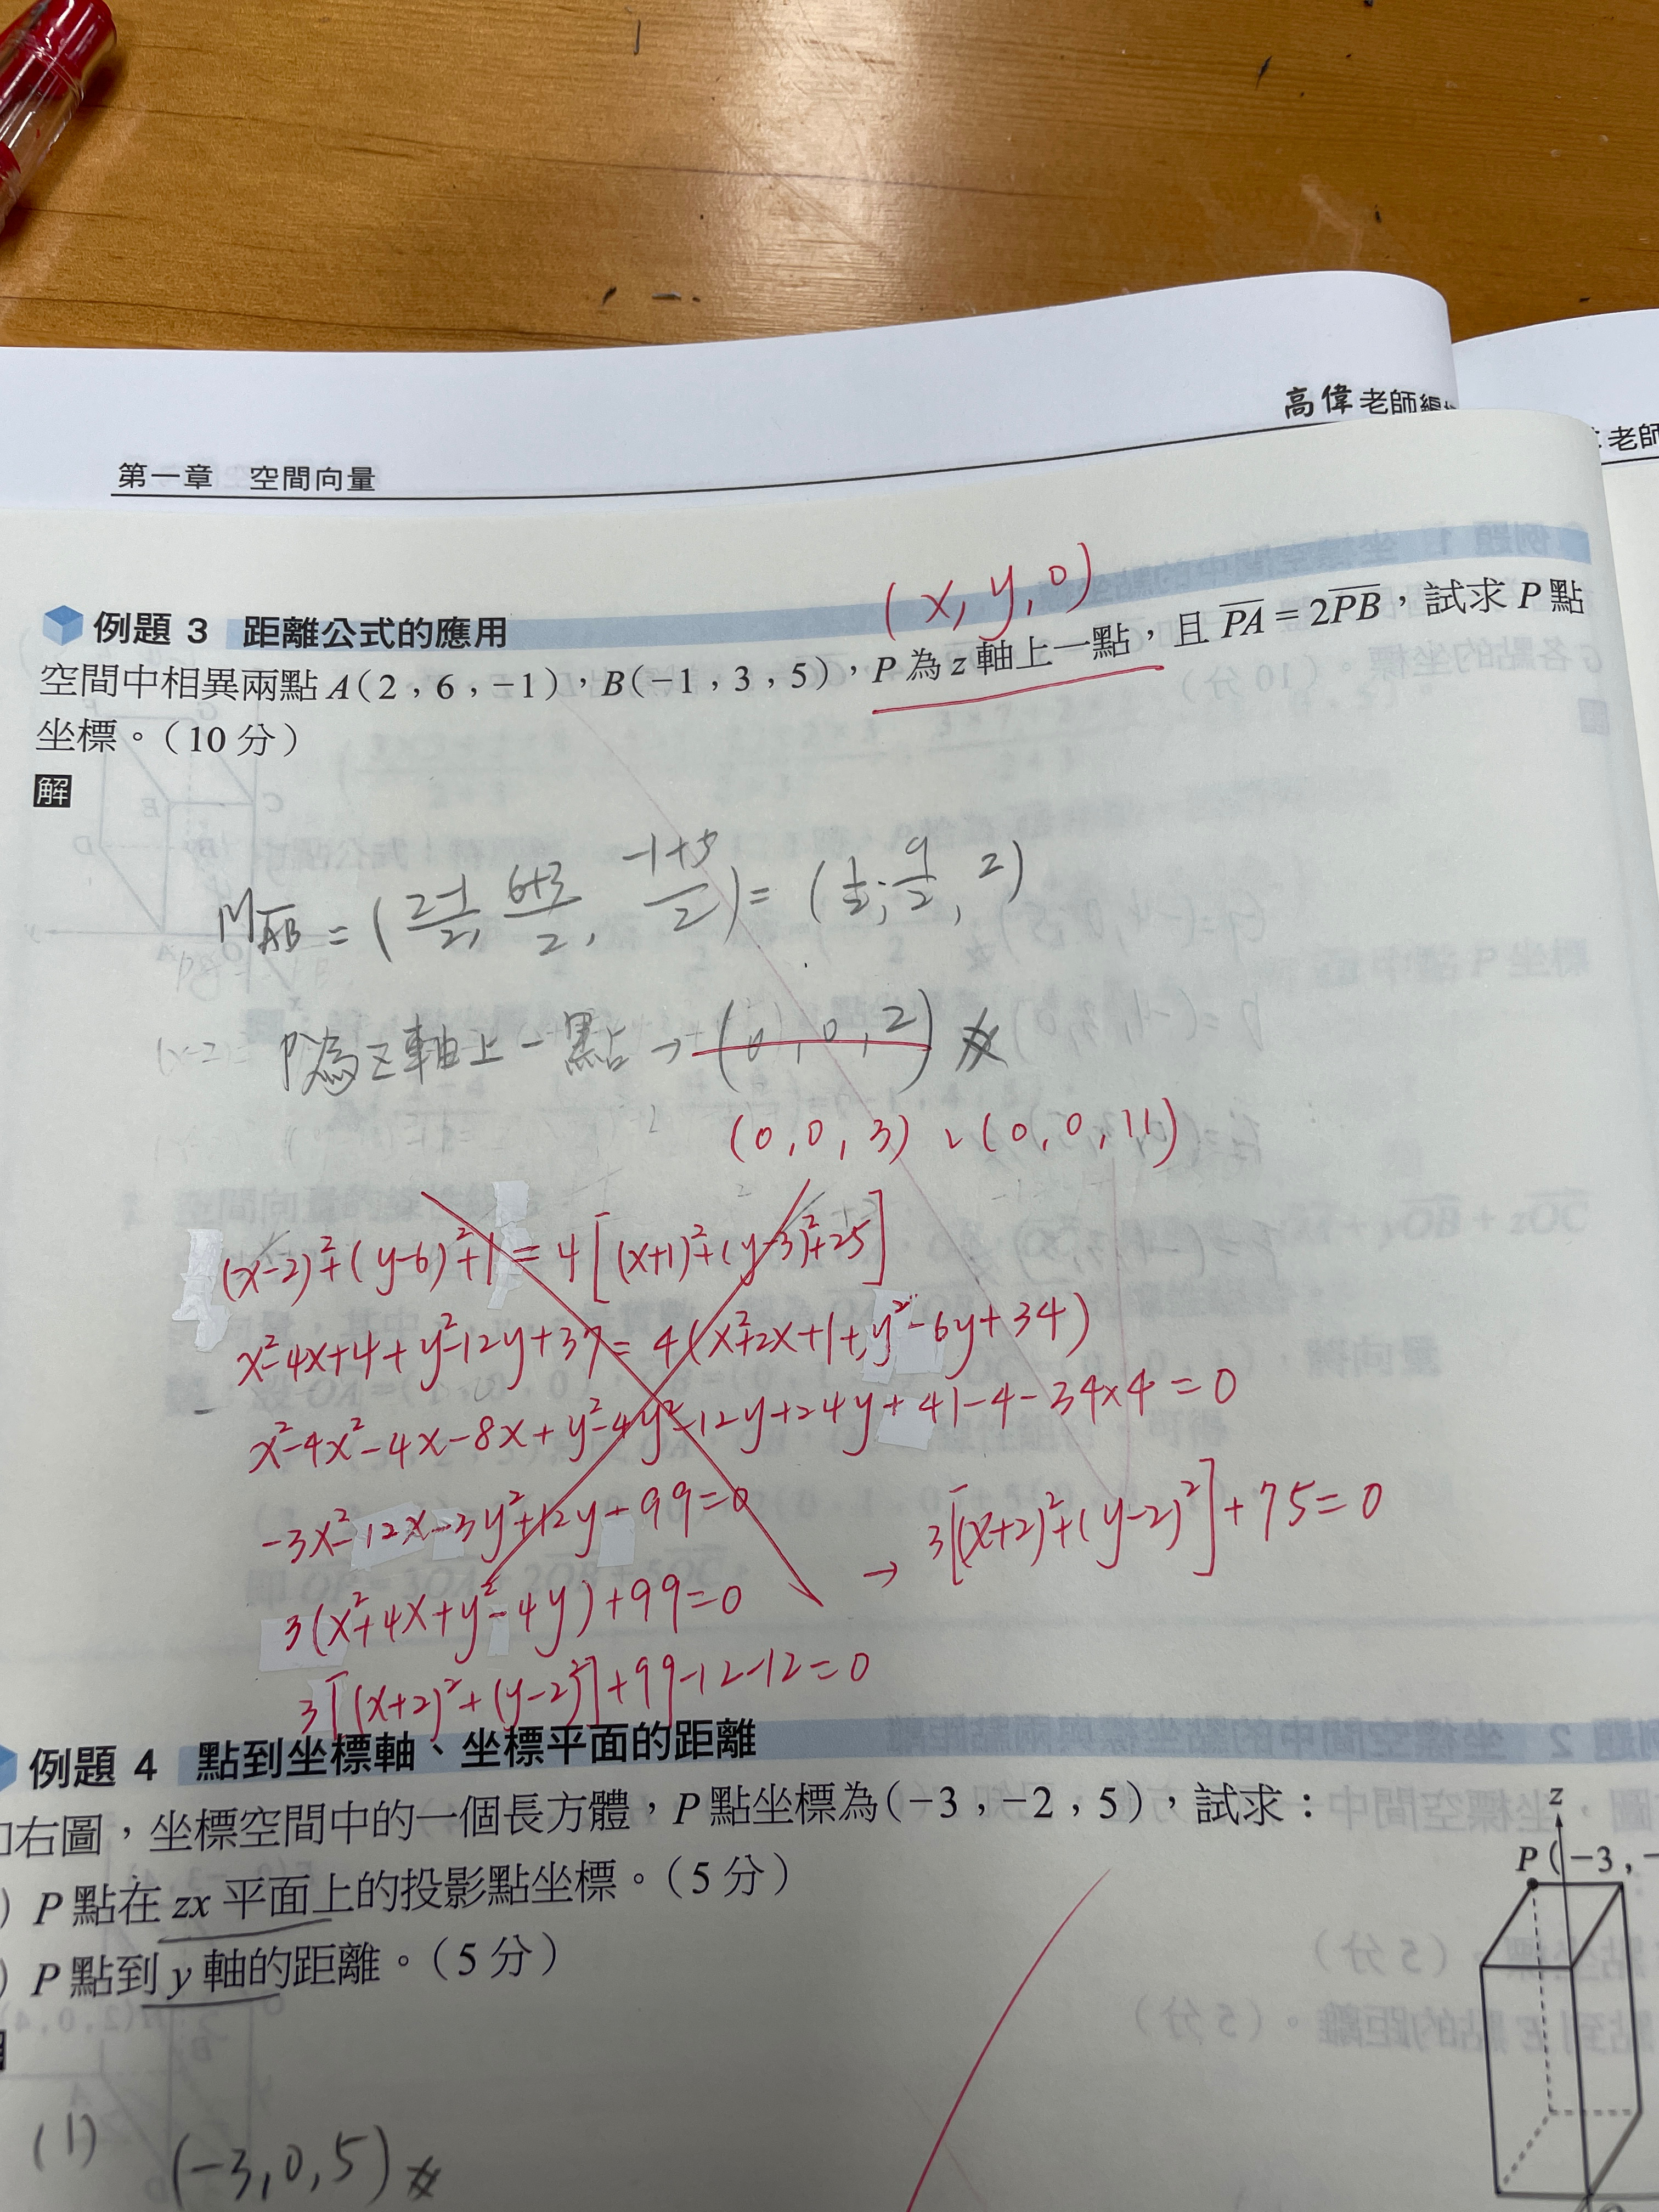 高偉老師編
老師
第一章 空間向量
(x, y, 0)
例題 3 距離公式的應用
空間中相異兩點 A(2,6,-1),B(-1,3,5),P 為 z 軸上一點,且 PA = 2PB,試求 P 點
坐標。(10 分)
解
M_AB = (2-1/2, 6+3/2, -1+5/2) = (1/2, 9/2, 2)
P為z軸上一點 → (0, 0, 2)
(0, 0, 3)、(0, 0, 11)
(x-2)²+(y-6)²+1 = 4[(x+1)²+(y-3)²+25]
x²-4x+4+y²-12y+37 = 4(x²+2x+1+y²-6y+34)
x²-4x²-4x-8x+y²-4y²-12y+24y+41-4-34×4=0
-3x²-12x-3y²+12y+99=0
3(x²+4x+y²-4y)+99=0
3[(x+2)²+(y-2)²]+99-12-12=0
→ 3[(x+2)²+(y-2)²]+75=0
例題 4 點到坐標軸、坐標平面的距離
右圖,坐標空間中的一個長方體,P 點坐標為(-3,-2,5),試求:
) P 點在 zx 平面上的投影點坐標。(5 分)
) P 點到 y 軸的距離。(5 分)
z
P(-3,-
(1) (-3,0,5)